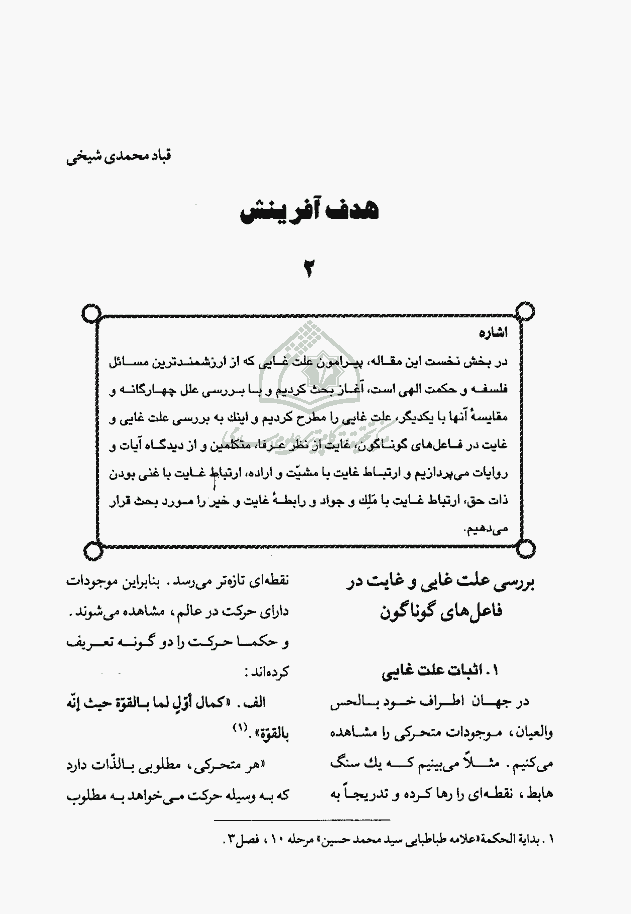 قباد محمدی شیخی
هدف آفرینش
۲
اشاره
در بخش نخست این مقاله، پیرامون علت غایی که از ارزشمندترین مسائل
فلسفه و حکمت الهی است، آغاز بحث کردیم و با بررسی علل چهارگانه و
مقایسهٔ آنها با یکدیگر، علت غایی را مطرح کردیم و اینک به بررسی علت غایی و
غایت در فاعل‌های گوناگون، غایت از نظر عرفا، متکلمین و از دیدگاه آیات و
روایات می‌پردازیم و ارتباط غایت با مشیّت و اراده، ارتباط غایت با غنی بودن
ذات حق، ارتباط غایت با مَلِك و جواد و رابطهٔ غایت و خیر را مورد بحث قرار
می‌دهیم.
بررسی علت غایی و غایت در
فاعل‌های گوناگون
۱. اثبات علت غایی
در جهان اطراف خود بالحس
والعیان، موجودات متحرکی را مشاهده
می‌کنیم. مثلاً می‌بینیم که یك سنگ
هابط، نقطه‌ای را رها کرده و تدریجاً به
نقطه‌ای تازه‌تر می‌رسد. بنابراین موجودات
دارای حرکت در عالم، مشاهده می‌شوند.
و حکما حرکت را دو گونه تعریف
کرده‌اند:
الف. «کمال أوّلٍ لما بالقوّة حیث إنّه
بالقوّة».(۱)
«هر متحرکی، مطلوبی بالذّات دارد
که به وسیله حرکت می‌خواهد به مطلوب
۱. بدایة الحکمة«علامه طباطبایی سید محمد حسین» مرحله ۱۰، فصل۳.